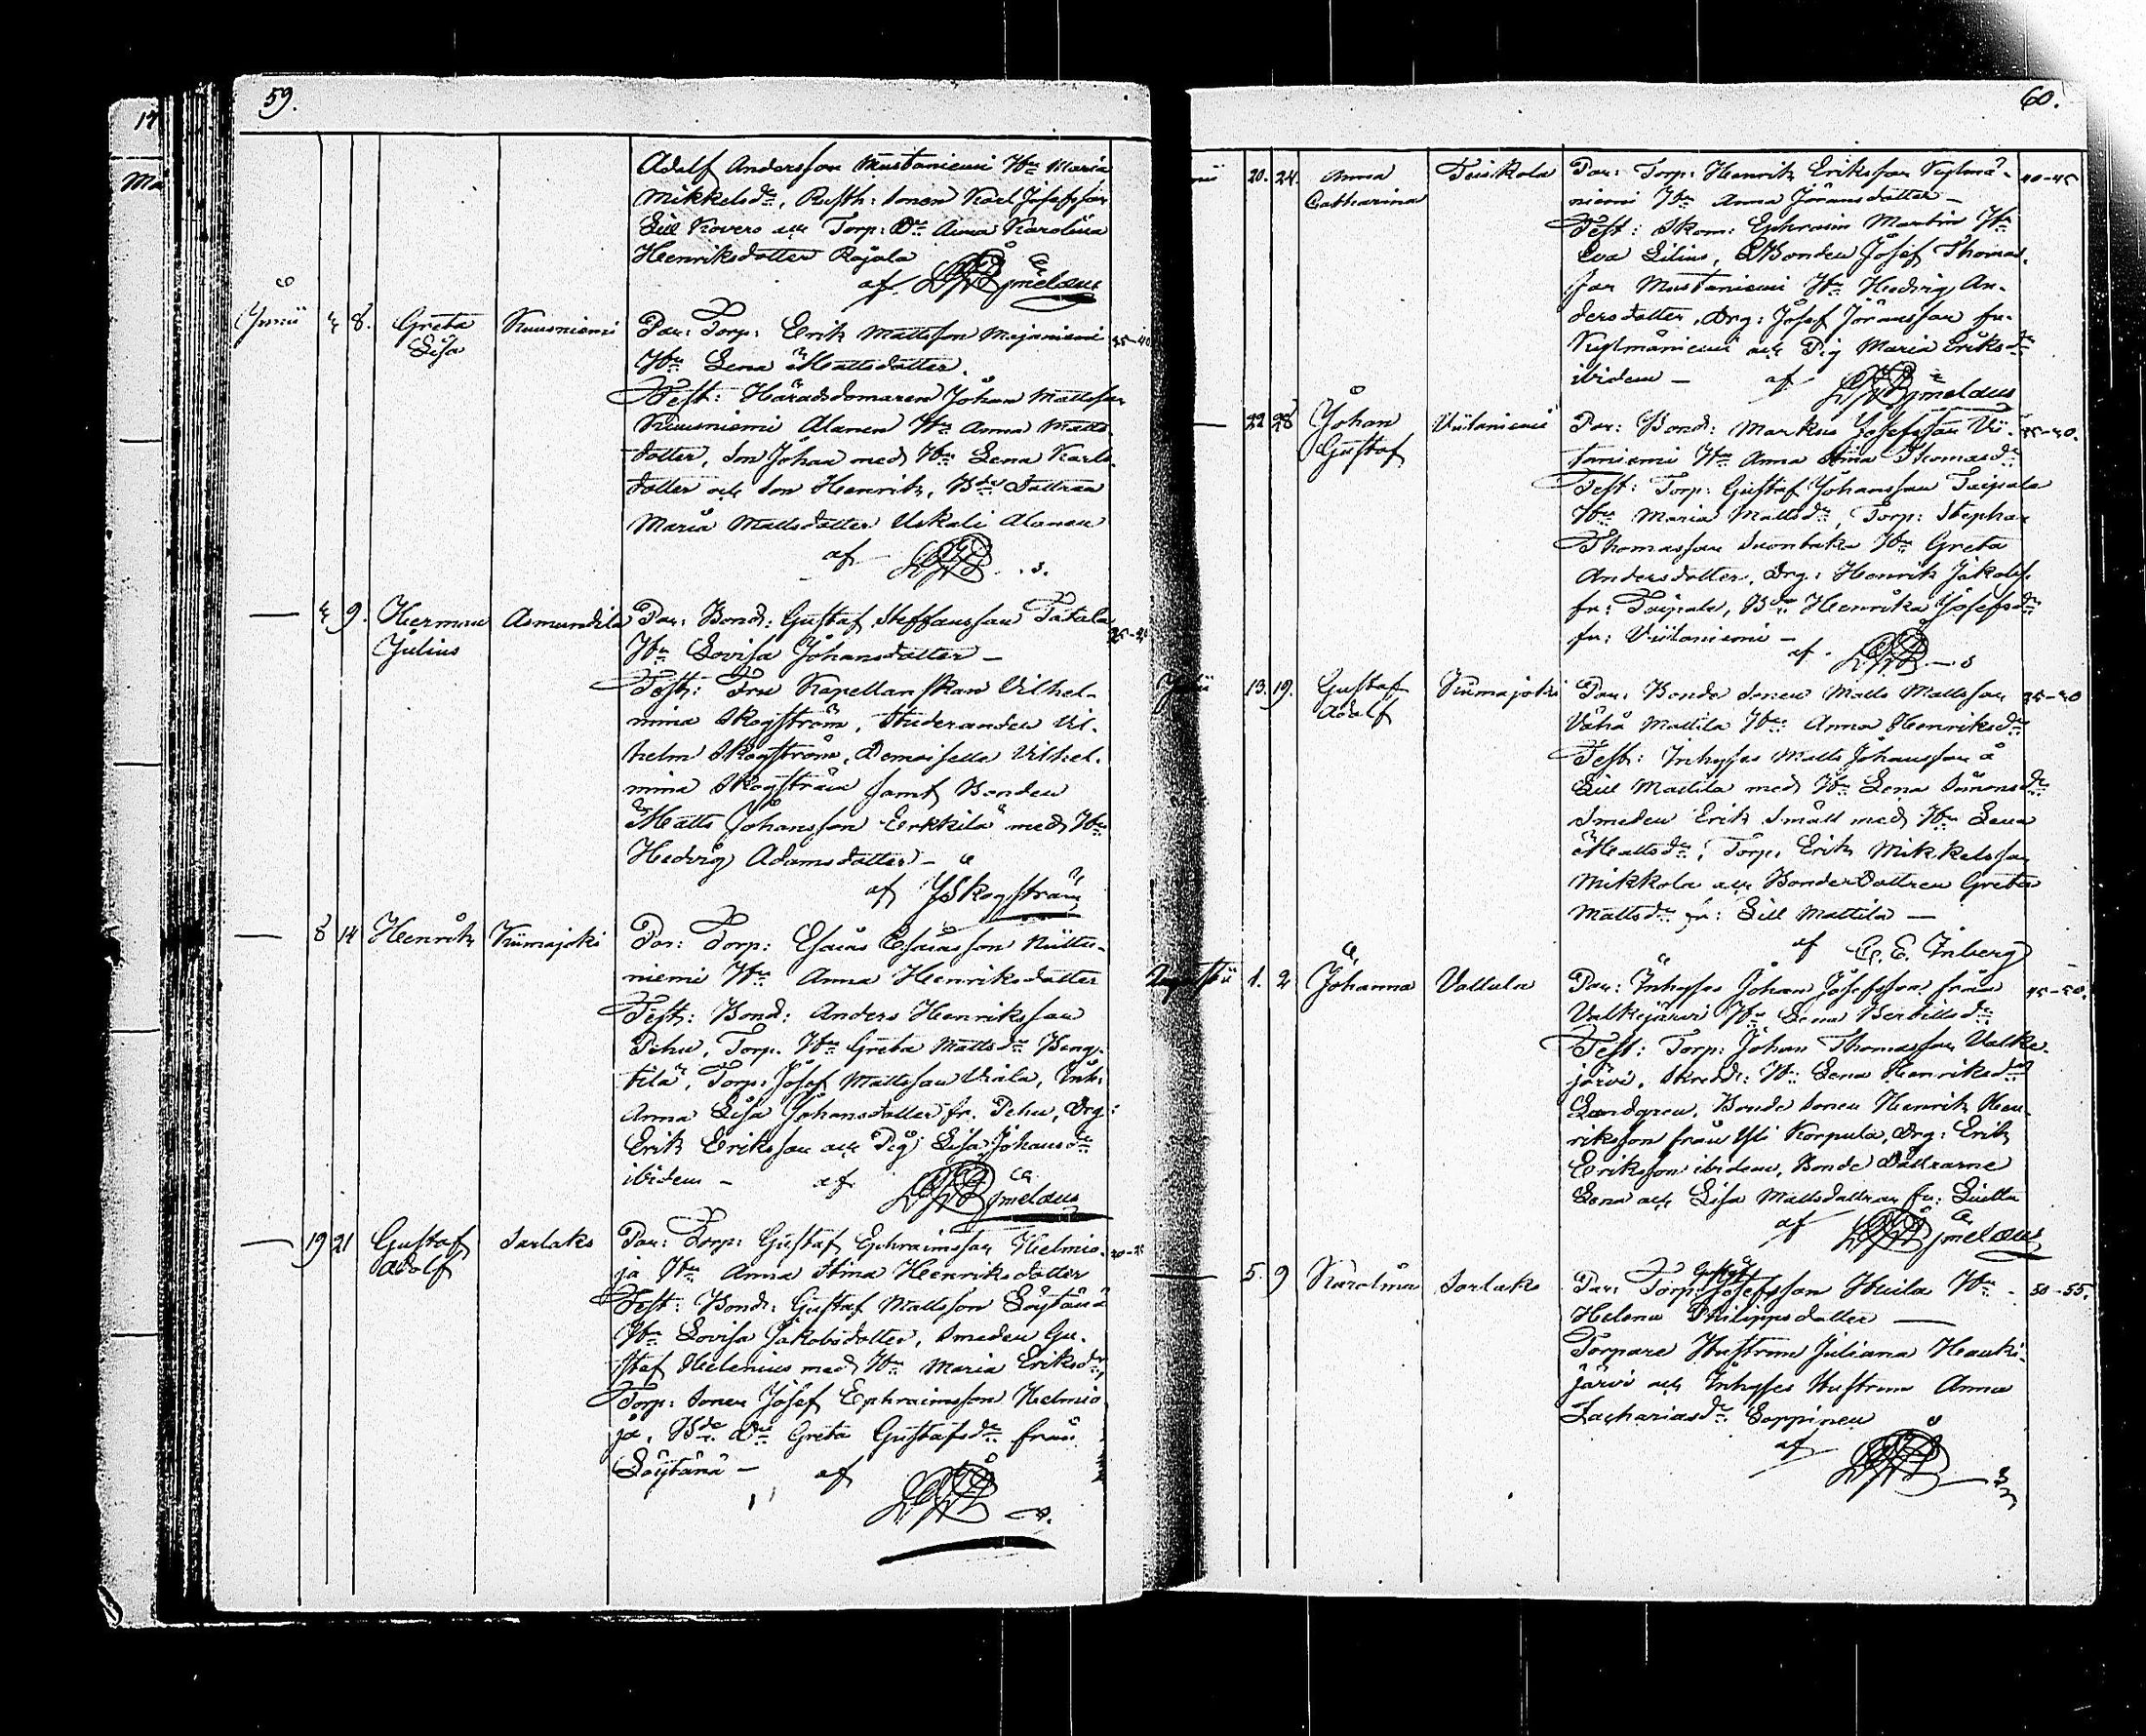 59.
Adolf Andersson Mustaniemi Hu Maria
Mikkelsdr, Rusth: sonen Karl Josefsson
Lill Kovero och Torp: Dr Anna Karolina
Henriksdotter Rajala
af
Junii 8. Greta Lisa Kuusniemi Par: Torp: Erik Mattsson Majaniemi 35-40
Hu Lena Mattsdotter.
Test: Häradsdomaren Johan Mattsson
Kuusniemi Alanen Hu Anna Matts
dotter, son Johan med Hu Lena Karls
dotter och son Henrik, Bde dottren
Maria Mattsdotter Uskali Alanen
af
— 9. Herman Julius Asmundila Par: Bond: Gustaf Steffansson Tatala
Hu Lovisa Johansdotter —
Test: Fru Kapellanskan Vilhel-
mina Skogström, Studeranden Vil-
helm Skogström, Demoiselle Vilhel-
mina Skogström samt Bonden
Matts Johansson Erkkilä med Hu
Hedvig Adamsdotter —
af Skogström
— 8 14 Henrik Kiimajoki Par: Torp: Esaias Esaiasson Niittu-
niemi Hu Anna Henriksdotter
Test: Bond: Anders Henriksson
Pehu, Torp. Hu Greta Mattsdr Peng-
tilä, Torp: Josef Mattsson Viala, Inh:
Anna Lisa Johansdotter fr. Pehu, Drg:
Erik Eriksson och Pig Lisa Johansdr
ibidem — af
— 19 21 Gustaf Adolf Sarlaks Par: Torp: Gustaf Ephraimsson Hielmio-
ja Hu Anna Stina Henriksdotter
Test: Bond: Gustaf Mattsson Löytänä
Hu Lovisa Jakobsdotter, Smeden Gu-
staf Helenius med Hu Maria Eriksdr,
Torp: sonen Josef Ephraimsson Hielmio
ja, Bde Dr Greta Gustafsdr från
Löytänä — af
60.
20. 24. Anna Catharina Teisikola Par: Torp: Henrik Eriksson Kylmä- 40-45
niemi Hu Anna Göransdotter —
Test: Skom: Ephraim Martin Hu
Eva Lilius, Bonden Josef Thomas-
son Mustaniemi Hu Hedvig An-
dersdotter, Drg: Josef Göransson fr.
Kylmäniemi och Pig Maria Eriksdr
ibidem — af
— 22 28 Johan Gustaf Viitaniemi Par: Bond: Markus Josefsson Vii-
taniemi Hu Anna Stina Thomasdr
Test: Torp: Gustaf Johansson Taipale
Hu Maria Mattsdr, Torp: Stephan
Thomasson Hu Greta
Andersdotter, Drg: Henrik Jakobss.
fr: Taipale, Bdr Henrika Josefsdr
fr: Viitaniemi —
af
13. 19. Gustaf Adolf Kiimajoki Par: Bonde sonen Matts Mattsson
Vähä Mattila Hu Anna Henriksdr
Test: Inhyses Matts Johansson å
Lill Mattila med Hu Lena Simonsdr
Smeden Erik Småll med Hu Lena
Mattsdr, Torp: Erik Mikkelsson
Mikkola och Bonde dottren Greta
Mattsdr fr: Lill Mattila —
af C. E. Inberg
Augusti 1. 2 Johanna Vallula Par: Inhyses Johan Josefsson från 45-50.
Valkejärvi Hu Lena Bertillsdr
Test: Torp: Johan Thomasson Valke-
järvi, Skrädd: Hu Lena Henriksdr
Landgren, Bonde sonen Henrik Hen-
riksson från Yli Korpula, Drg: Erik
Eriksson ibidem, Bonde Döttrarne
Lena och Lisa Mattsdöttrar fr:
af
— 5. 9 Karolina Sarlaks Par: Torp: Gustaf Josefsson Hu 50-55.
Helena Philippsdotter —
Torpare Hustrun Juliana Hauki-
järvi och Inhyses Hustrun Anna
Zachariasdr Loppinen
af